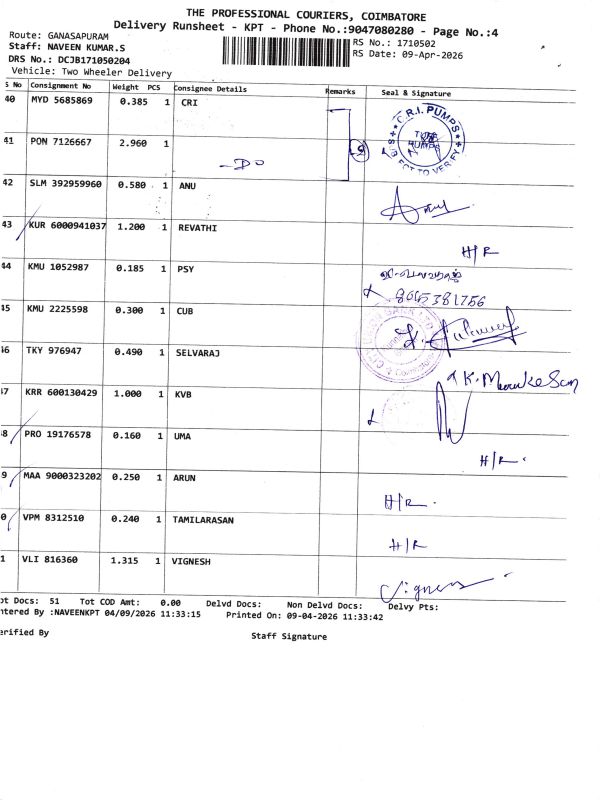 THE PROFESSIONAL COURIERS, COIMBATORE
Delivery Runsheet - KPT - Phone No.:9047080280 - Page No.:4
Route: GANASAPURAM
Staff: NAVEEN KUMAR.S
RS No.: 1710502
DRS No.: DCJB171050204
RS Date: 09-Apr-2026
Vehicle: Two Wheeler Delivery
S No Consignment No Weight PCS Consignee Details Remarks Seal & Signature
40 MYD 5685869 0.385 1 CRI
C.R.I. PUMPS
41 PON 7126667 2.960 1 -DO
SUBJECT TO VERIFY
42 SLM 392959960 0.580 1 ANU
43 KUR 6000941037 1.200 1 REVATHI H/R
44 KMU 1052987 0.185 1 PSY
8015381756
45 KMU 2225598 0.300 1 CUB
46 TKY 976947 0.490 1 SELVARAJ
47 KRR 600130429 1.000 1 KVB
48 PRO 19176578 0.160 1 UMA H/R.
9 MAA 9000323202 0.250 1 ARUN H/R.
0 VPM 8312510 0.240 1 TAMILARASAN H/R
1 VLI 816360 1.315 1 VIGNESH Vignesh
ot Docs: 51 Tot COD Amt: 0.00 Delvd Docs: Non Delvd Docs: Delvy Pts:
ntered By :NAVEENKPT 04/09/2026 11:33:15 Printed On: 09-04-2026 11:33:42
erified By Staff Signature